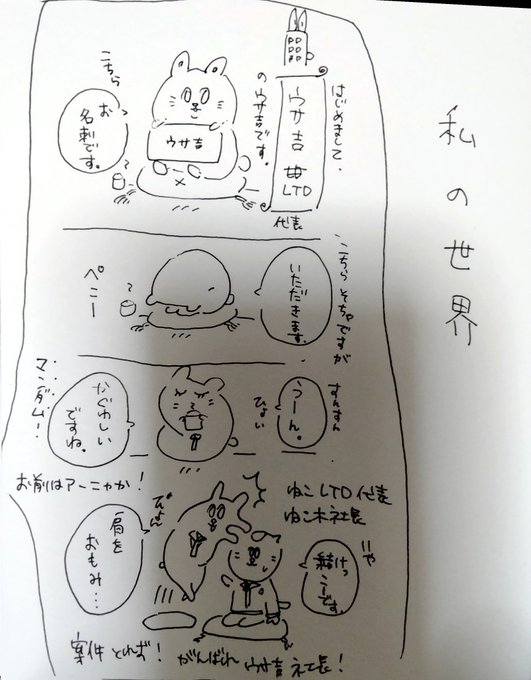 私の世界
はじめまして、
ウサ吉
LTD
代表
のウサ吉です。
ウサ吉
こちら
お名刺です。
こちらそちゃですが
いただきます。
ペこー
すんすん
ひょい
うーん。
かぐわしい
ですね。
マンダム!
お前はアーニャか!
ねこLTD代表
ねこ木社長
いや
結けっ
こーです
ぴょん
肩を
おもみ…
案件とれず!
がんばれ
ウサ吉社長!